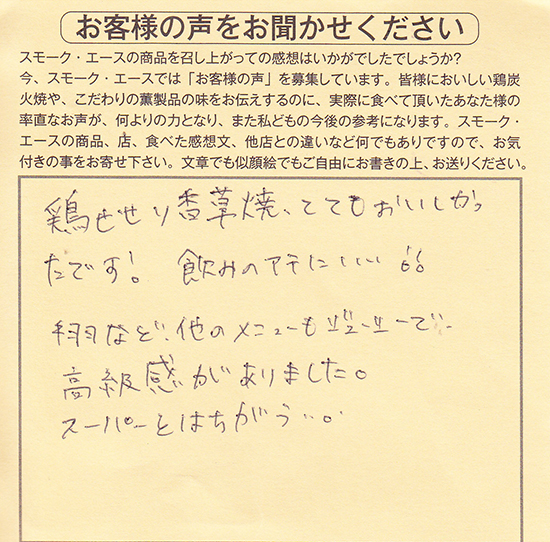 お客様の声をお聞かせください
スモーク・エースの商品を召し上がっての感想はいかがでしたでしょうか?
今、スモーク・エースでは「お客様の声」を募集しています。皆様においしい鶏炭
火焼や、こだわりの薫製品の味をお伝えするのに、実際に食べて頂いたあなた様の
率直なお声が、何よりの力となり、また私どもの今後の参考になります。スモーク・
エースの商品、店、食べた感想文、他店との違いなど何でもありですので、お気
付きの事をお寄せ下さい。文章でも似顔絵でもご自由にお書きの上、お送りください。
鶏せせり香草焼、とてもおいしかっ
たです! 飲みのアテにいい
など、他のメニューも ジューシーで、
高級感がありました。
スーパーとはちがう…。